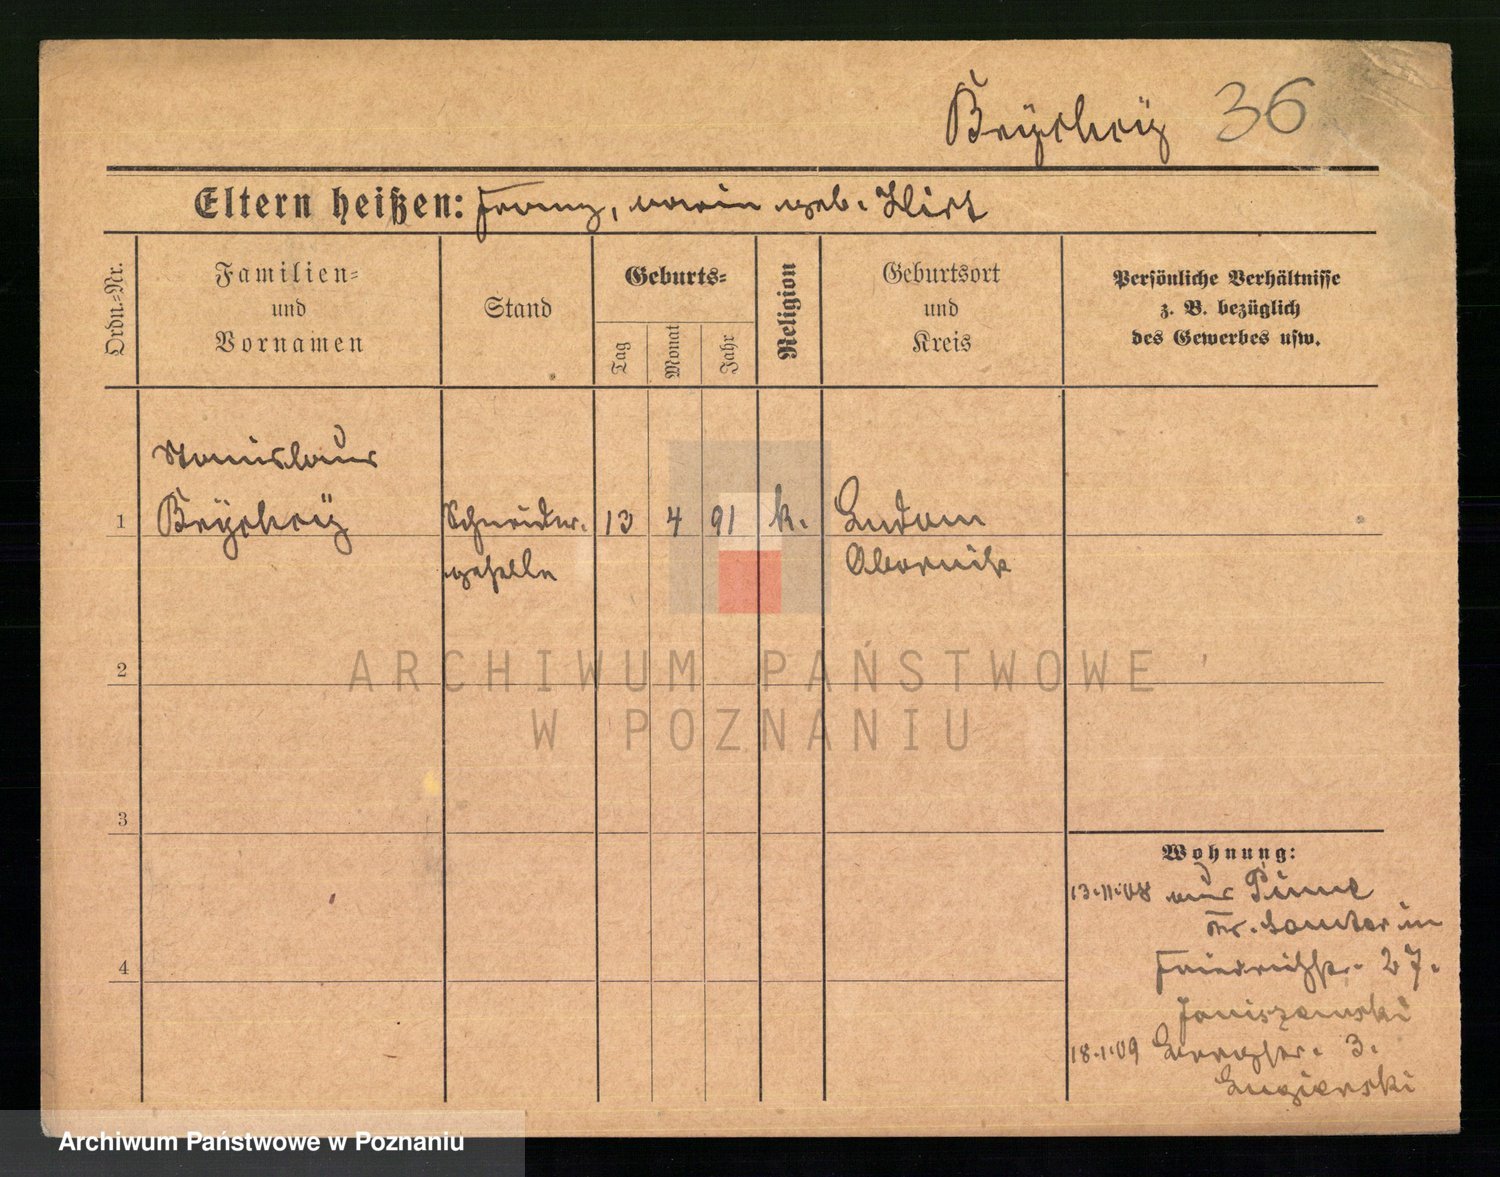 Brychcÿ 36
Eltern heißen: Franz, Marie geb. Hirt
Ordn.-Nr.
Familien-
und
Vornamen
Stand
Geburts-
Tag
Monat
Jahr
Religion
Geburtsort
und
Kreis
Persönliche Verhältnisse
z. B. bezüglich
des Gewerbes usw.
Stanislaus
1 Brychcÿ Schneider- 13 4 91 k. Ludom
geselle Obornik
2
3
4
Wohnung:
13.11.08 aus Pinne
Fr. in
Friedrichstr. 27.
Janiszewski
18.1.09 3.
ARCHIWUM PAŃSTWOWE
W POZNANIU
Archiwum Państwowe w Poznaniu